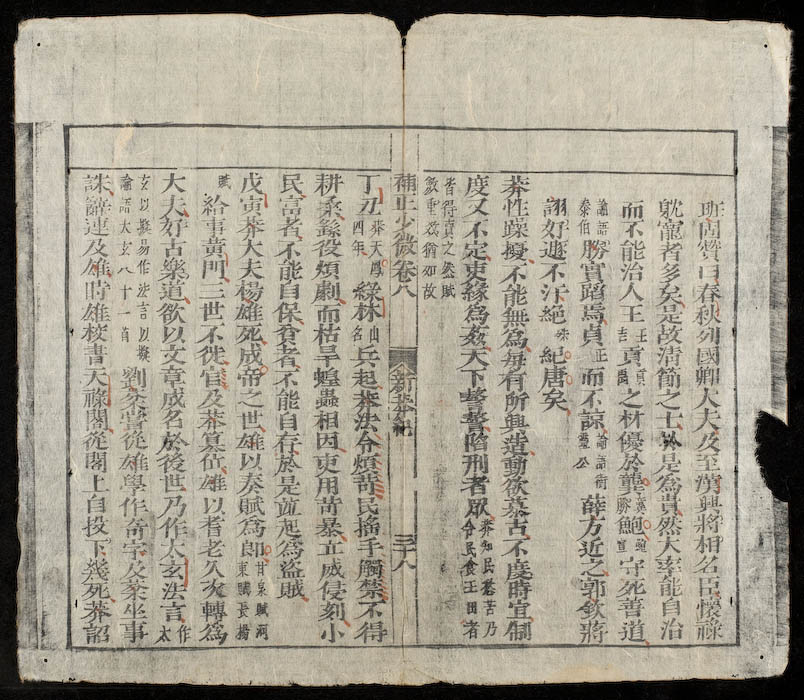 班固贊曰春秋列國卿大夫及至漢興將相名臣懷祿
躭寵者多矣是故清節之士於是為貴然大率能自治
而不能治人王王吉貢貢禹之材優於龔龔勝鮑鮑宣守死善道
論語泰伯勝實蹈焉貞正而不諒論語衛靈公薛方近之郭欽蔣
詡好遯不汙絕殊紀唐矣
莽性躁擾不能無為每有所興造動欲慕古不度時宜制
度又不定吏緣為姦天下警警陷刑者眾莽知民愁苦乃令民食王田者
皆得賣之然賦斂重猶如故
補正少微卷八 新莽紀 三十八
丁丑莽天鳳四年綠林山名兵起莽法令煩苛民搖手觸禁不得
耕桑繇役煩劇而枯旱蝗蟲相因吏用苛暴立威侵刻小
民富者不能自保貧者不能自存於是並起為盜賊
戊寅莽大夫楊雄死成帝之世雄以奏賦為郎甘泉賦河東賦長楊
賦給事黃門三世不徙官及莽篡位雄以耆老久次轉為
大夫好古樂道欲以文章成名於後世乃作太玄法言作太
玄以擬易作法言以擬論語太玄八十一首劉棻嘗從雄學作奇字及棻坐事
誅辭連及雄時雄校書天祿閣從閣上自投下幾死莽詔